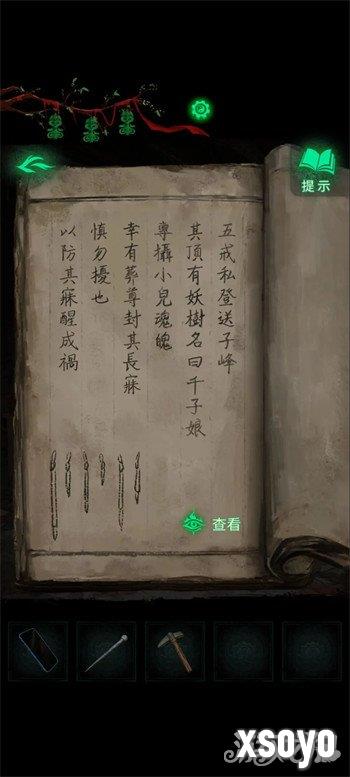 提示
五戒私登送子峰
其頂有妖樹名曰千子娘
專攝小兒魂魄
幸有葬尊封其長寐
慎勿擾也
以防其寐醒成禍
查看
xsoyo